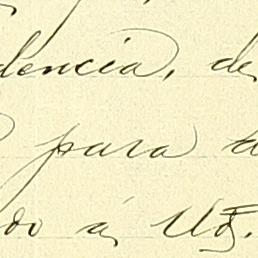 dencia, de
para
do á Ud.